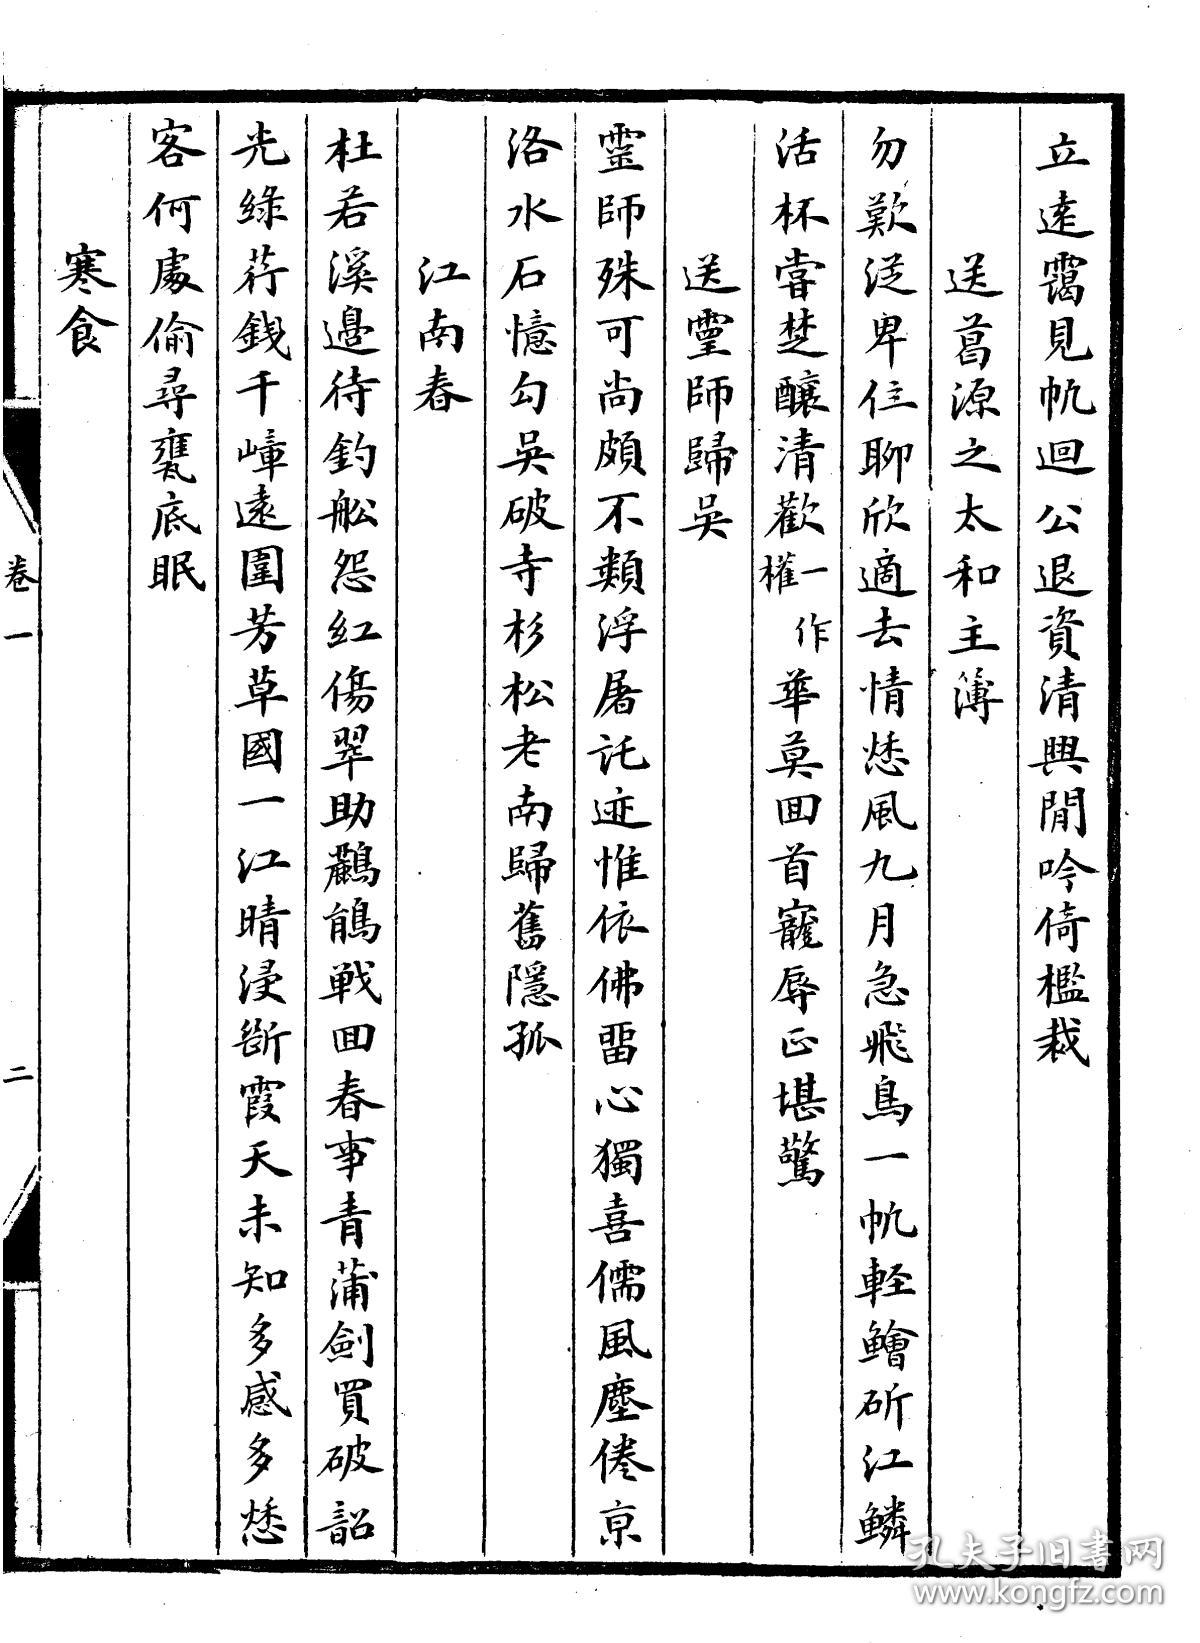 立遠靄見帆迴公退資清興閒吟倚檻裁
送葛源之太和主簿
勿歎從卑位聊欣適去情愁風九月急飛鳥一帆輕鱠斫江鱗
活杯嘗楚釀清歡一作權華莫回首寵辱正堪驚
送靈師歸吳
靈師殊可尚頗不類浮屠託迹惟依佛留心獨喜儒風塵倦京
洛水石憶勾吳破寺杉松老南歸舊隱孤
江南春
杜若溪邊待釣船怨紅傷翠助鸕鶄戰回春事青蒲劍買破韶
光綠荇錢千嶂遠圍芳草國一江晴浸斷霞天未知多感多愁
客何處偷尋甕底眠
寒食
卷一
二
孔夫子旧書网
www.kongfz.com